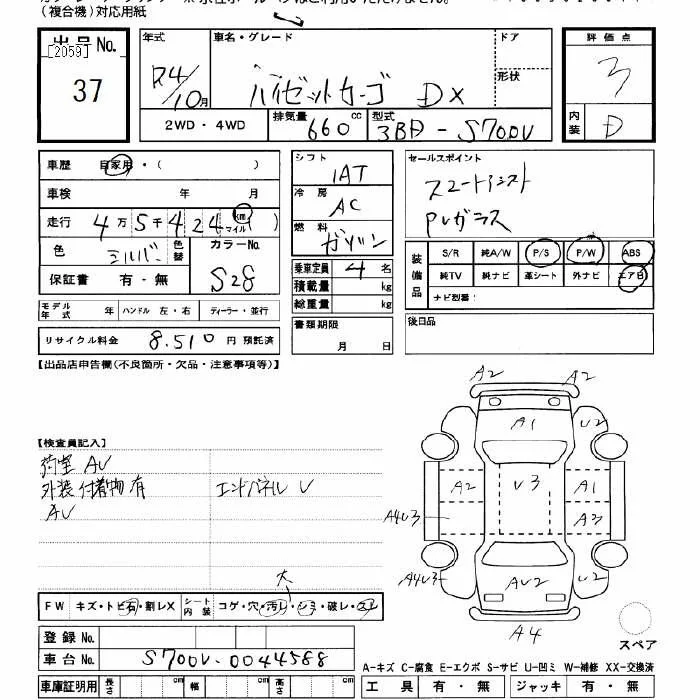 (複合機)対応用紙
出品No. [2059] 37
年式 R4/10月
車名・グレード ハイゼットカーゴ DX
ドア
形状
評価点 3
内装 D
2WD・4WD
排気量 660cc
型式 3BD-S700V
車歴 自家用・( )
車検 年 月
走行 4万5千424km マイル ( )
色 シルバー 色替 カラーNo. S28
保証書 有・無
モデル年式 年 ハンドル 左・右 ディーラー・並行
リサイクル料金 8.510 円 預託済
シフト IAT
冷房 AC
燃料 ガソリン
乗車定員 4 名
積載量 kg
総重量 kg
書類期限
月 日
セールスポイント
スマートアシスト
PVガラス
装備品 S/R 純A/W P/S P/W ABS
純TV 純ナビ 革シート 外ナビ エアB
ナビ型番:
後日品
【出品店申告欄(不良箇所・欠品・注意事項等)】
【検査員記入】
荷室 AU
外装付着物有 エンドパネル U
AU
A2 A2
A1 U2
A2 U3 A1
A4U3 A2
A4U3 AU2 U2
A4
スペア
大
FW キズ・トビ石・割レX シート内装 コゲ・穴・汚レ・シミ・破レ・スレ
登録No.
車台No. S700V-0044588
車庫証明用 長さ cm 幅 cm 高さ cm
A-キズ C-腐食 E-エクボ S-サビ U-凹ミ W-補修 XX-交換済
工具 有・無 ジャッキ 有・無